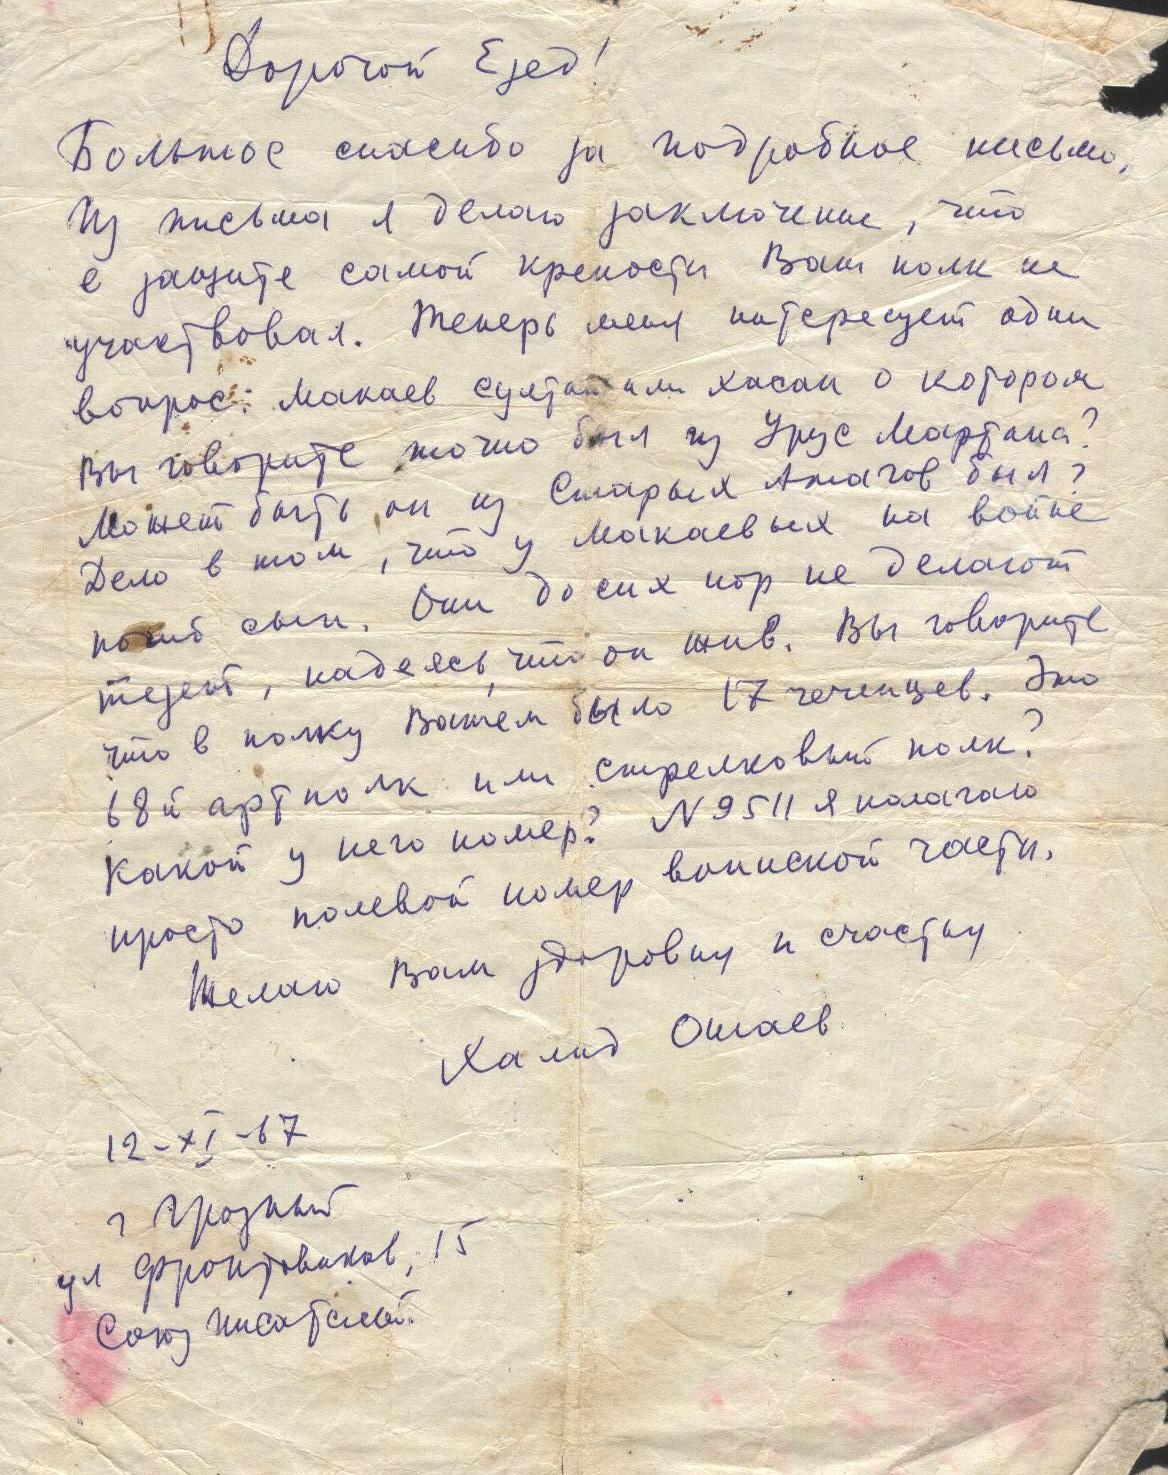 Дорогой Езед!
Большое спасибо за подробное письмо.
Из письма я делаю заключение, что
в защите самой крепости Ваш полк не
участвовал. Теперь меня интересует один
вопрос: Макаев Султан или Хасан о котором
Вы говорите точно был из Урус Мартана?
Может быть он из Старых Атагов был?
Дело в том, что у Макаевых на войне
погиб сын. Они до сих пор не делают
тезет, надеясь, что он жив. Вы говорите
что в полку Вашем было 17 чеченцев. Это
68й артполк или стрелковый полк?
Какой у него номер? N 9511 я полагаю
просто полевой номер воинской части.
Желаю Вам здоровия и счастья
Халид Ошаев
12-XI-67
г Грозный
ул Фронтовиков, 15
Союз писателей.